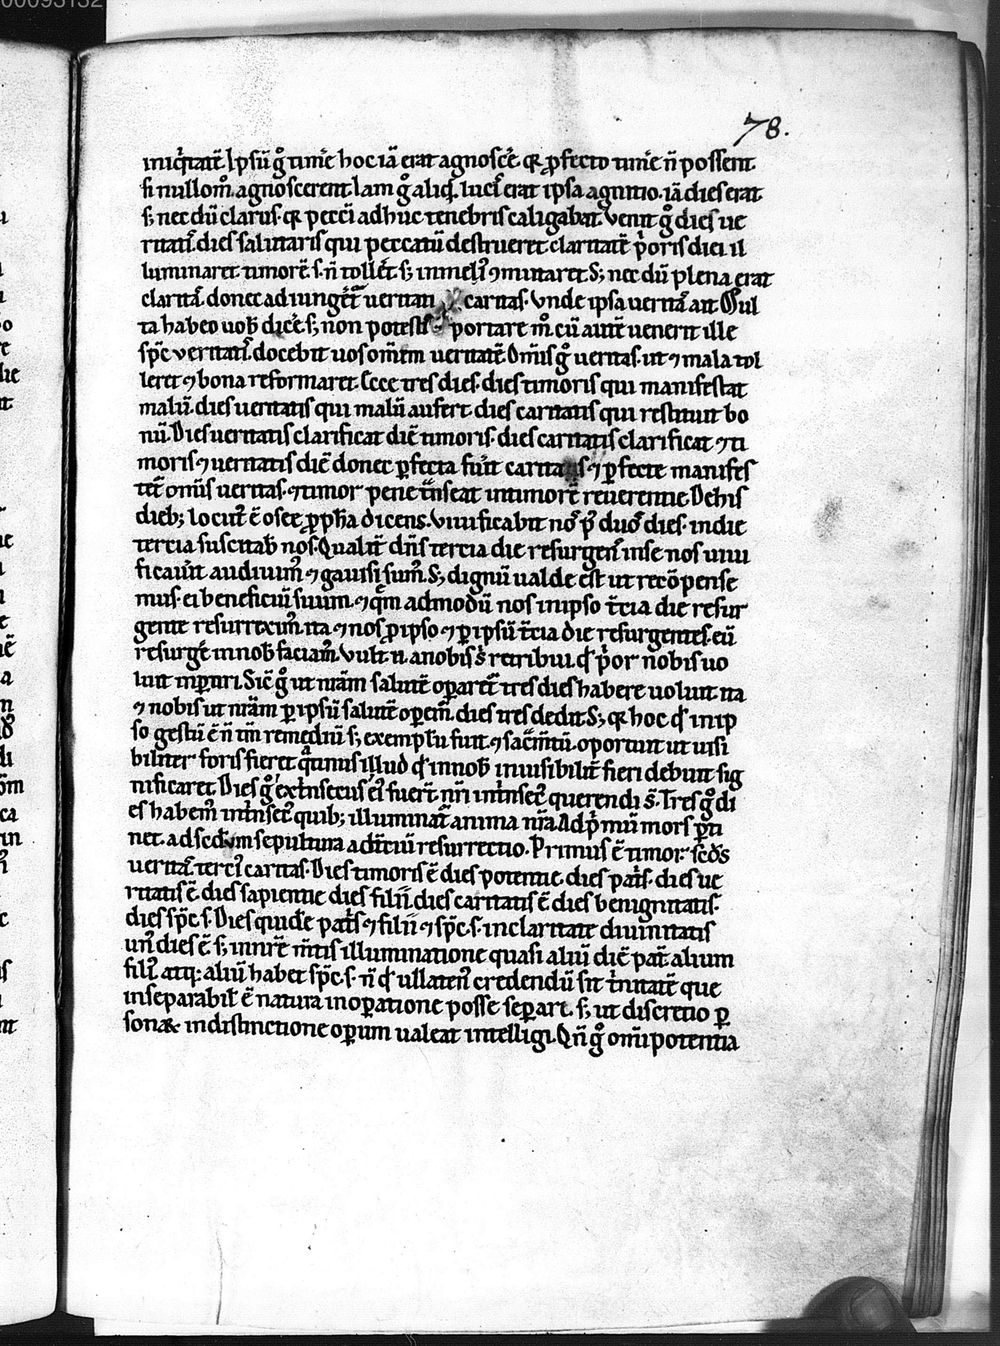 00095132
78.
iniq̇tatē Ipsū g̊ tim̄e hoc iā erat agnosc̄e. q̨ ꝓfecto tim̄e ñ possent
si nullom̊ agnoscerent Iam g̊ aliq̨. luc̄ erat ipsa agnitio. iā dies erat
s; nec dū clarus. q̨ pecc̄i adhuc tenebris caligabat. Venit g̊ dies ue
ritatiˢ dies salutaris qui peccatū destrueret. claritatē p̊oris diei il
luminaret timorē .s. ñ toll̄et. s; in meliꝰ ɔmutaret S; nec dū plena erat
claritaˢ. donec adiunget̄ᵗ ueritati caritas. Vnde ipsa ueritaˢ ait Mul
ta habeo uob̄ dic̄e s; non potestis portare m̊. cū autē uenerit ille
sp̄c ueritatiˢ. docebit uos om̄em ueritatē Om̄is g̊ ueritas. ut ⁊ mala tol
leret ⁊ bona reformaret. Ecce tres dies. dies timoris qui manifestat
malū. dies ueritatis qui malū aufert. dies caritatis qui restituit bo
nū. Dies ueritatis clarificat diē timoris. dies caritatis clarificat ⁊ ti
moris ⁊ ueritatis diē donec ꝑfecta fu̾it caritas ⁊ ꝑfecte manifes
tet̄ om̄is ueritas. ⁊ timor penet̄nseat in timorē reuerentie. De his
dieb; locutꝰ ē osee ꝓph̄a dicens. Viuificabit noˢ pꝰ duoˢ dies. in die
tercia suscitab̄ nos. Qualit̄ dn̄s tercia die resurgenˢ in se nos uiui
ficau̾it audiuimꝰ ⁊ gauisi sumꝰ. S; dignū ualde est ut recōpense
mus ei beneficiū suum. ⁊ q̄m admodū nos in ipso t̄cia die resur
gente resurreximꝰ. ita ⁊ nos ꝓ ipso ⁊ ꝑ ipsū t̄cia die resurgentes. eū
resurg̾e in nob̄ faciamꝰ. Vult .n. a nobis s̄ retribui. qd̄ p̊or nobis uo
luit inꝑtiri. Sic̄ g̊ ut nr̄am salutē oꝑaret̄ tres dies habere uoluit ita
⁊ nobis ut nr̄am ꝑ ipsū salutē oꝑemꝰ. dies tres dedit. S; q̨ hoc qd̄ in ip
so gestū ē ñ tm̄ remediū s; exemplū fuit. ⁊ sac̄m̄tū. oportuit ut uisi
biliter foris fieret q̄tinus illud qd̄ in nob̄ inuisibilit̄ fieri debuit sig
nificaret Dies g̊ ext̾nsecus ei fuer̄t. nr̄i int̾nsecꝰ querendi s̄. Tres g̊ di
es habemꝰ int̾nsecꝰ quib; illuminat̄ anima nr̄a Ad p̊mū mors ꝑti
net. ad sc̄dum sepultura ad t̄ciū resurrectio. Primus ē timor. sc̄ds
ueritaˢ. terciꝰ caritas. Dies timoris ē dies potentie dies pat̾s. dies ue
ritatis ē dies sapientie dies filii. dies caritatis ē dies benignitatis.
dies sp̄c .s. Dies quidē pat̾s ⁊ filii ⁊ sp̄c .s. in claritate diuinitatis
unꝰ dies ē. s; in nr̄e m̄tis illuminatione quasi aliū diē pat̄ alium
filiꝰ atq; aliū habet sp̄c .s. ñ qd̄ ullatenꝰ credendū sit t̾nitatē que
inseparabiłˢ ē natura in oꝑatione posse seꝑari. s; ut discretio ꝑ
sonaꝝ in distinctione oꝑum ualeat intelligi. Qn̄ g̊ om̄ipotentia